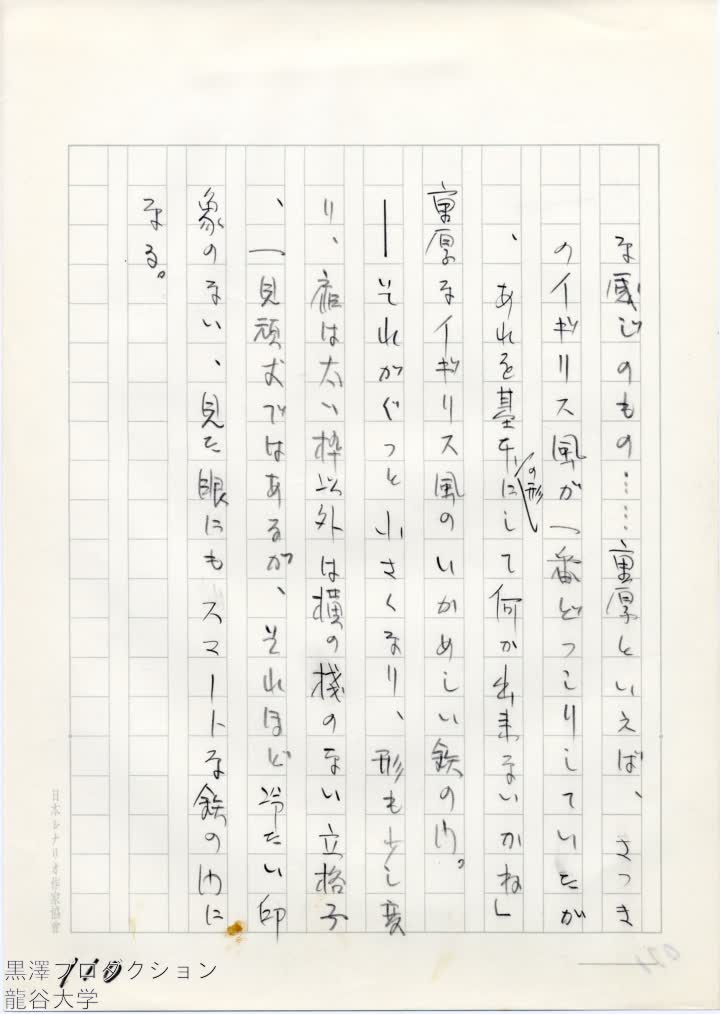 な感じのもの……重厚といえば、さっき
のイギリス風が一番どっこりしていたが
、あれを基本にして何か出来ないかね」
の形
重厚なイギリス風のいかめしい鉄の門。
――それがぐっと小さくなり、形も少し変
り、扉は太い枠以外は横の桟のない立格子
、一見頑丈ではあるが、それほど冷たい印
象のない、見た眼にもスマートな鉄の門に
なる。
日本シナリオ作家協會
黒澤プロダクション
龍谷大学